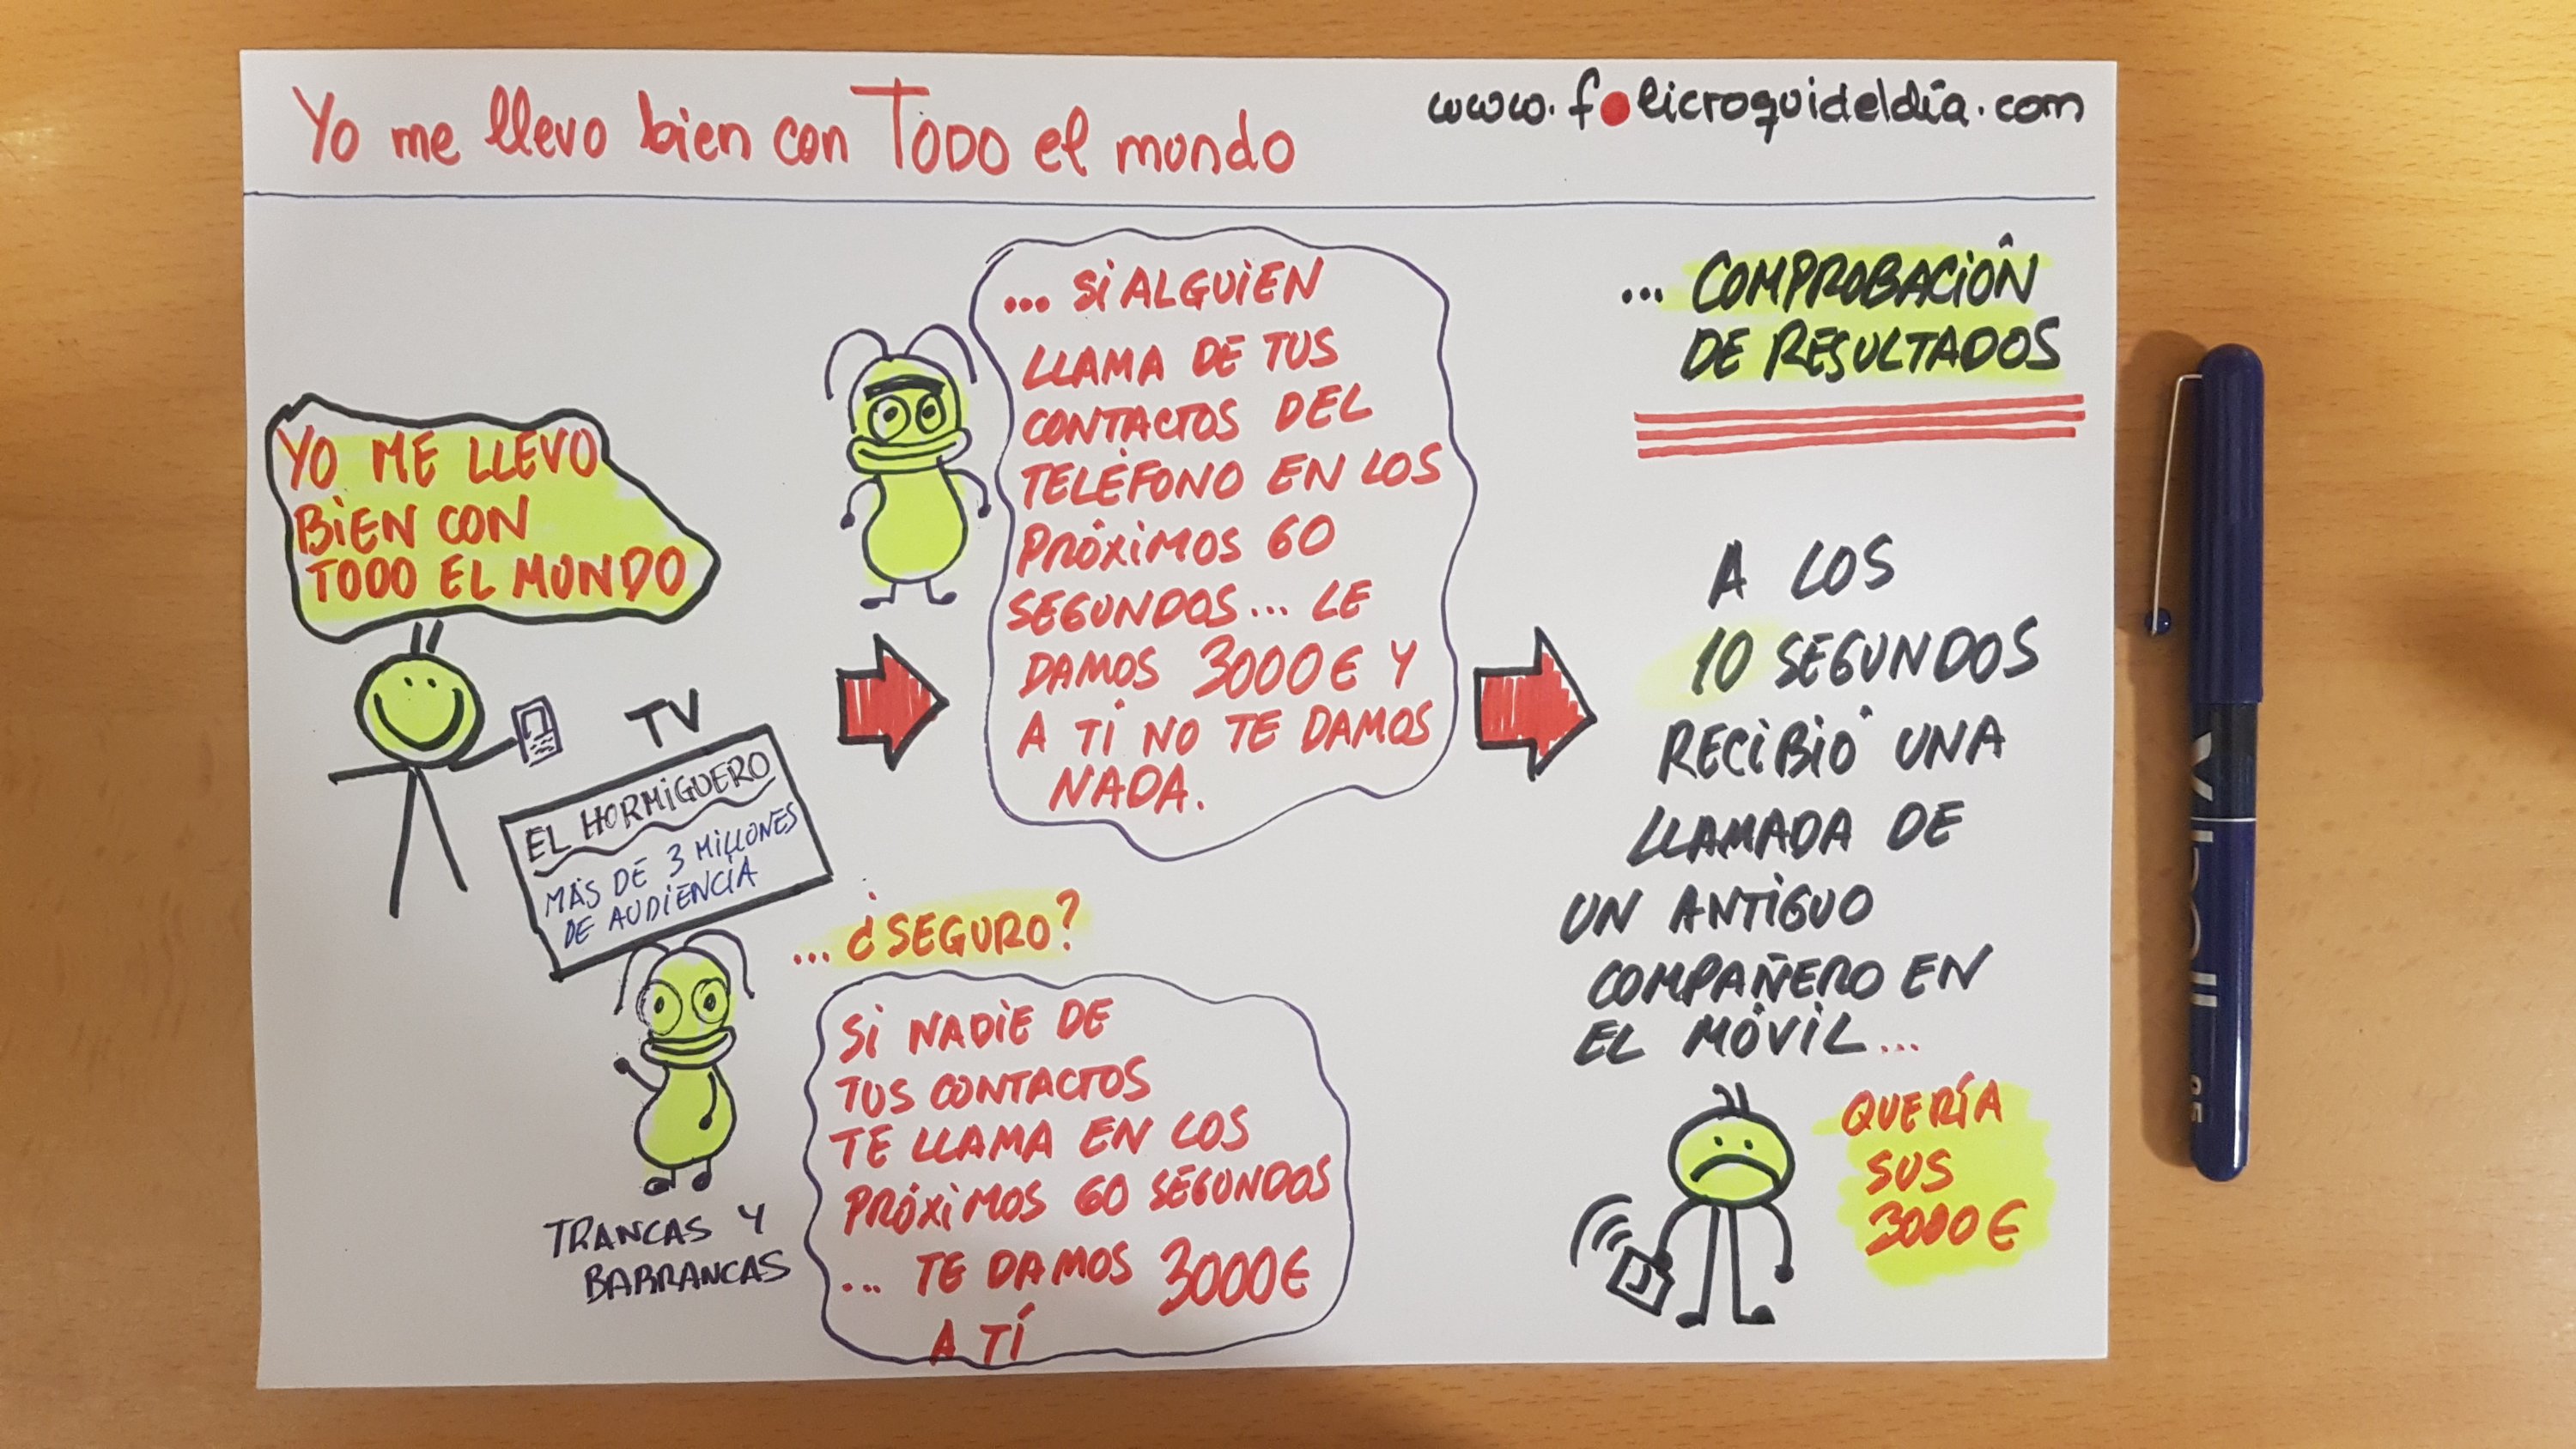 Yo me llevo bien con TODO el mondo
www.folicroquideldía.com
YO ME LLEVO
BIEN CON
TODO EL MUNDO
TV
EL HORMIGUERO
MÁS DE 3 MILLONES
DE AUDIENCIA
TRANCAS Y
BARRANCAS
... SI ALGUIEN
LLAMA DE TUS
CONTACTOS DEL
TELÉFONO EN LOS
PRÓXIMOS 60
SEGUNDOS... LE
DAMOS 3000€ Y
A TÍ NO TE DAMOS
NADA.
... ¿SEGURO?
SI NADIE DE
TUS CONTACTOS
TE LLAMA EN LOS
PRÓXIMOS 60 SEGUNDOS
... TE DAMOS 3000€
A TÍ
... COMPROBACIÓN
DE RESULTADOS
A LOS
10 SEGUNDOS
RECIBIÓ UNA
LLAMADA DE
UN ANTIGUO
COMPAÑERO EN
EL MÓVIL...
QUERÍA
SUS
3000€
V
05